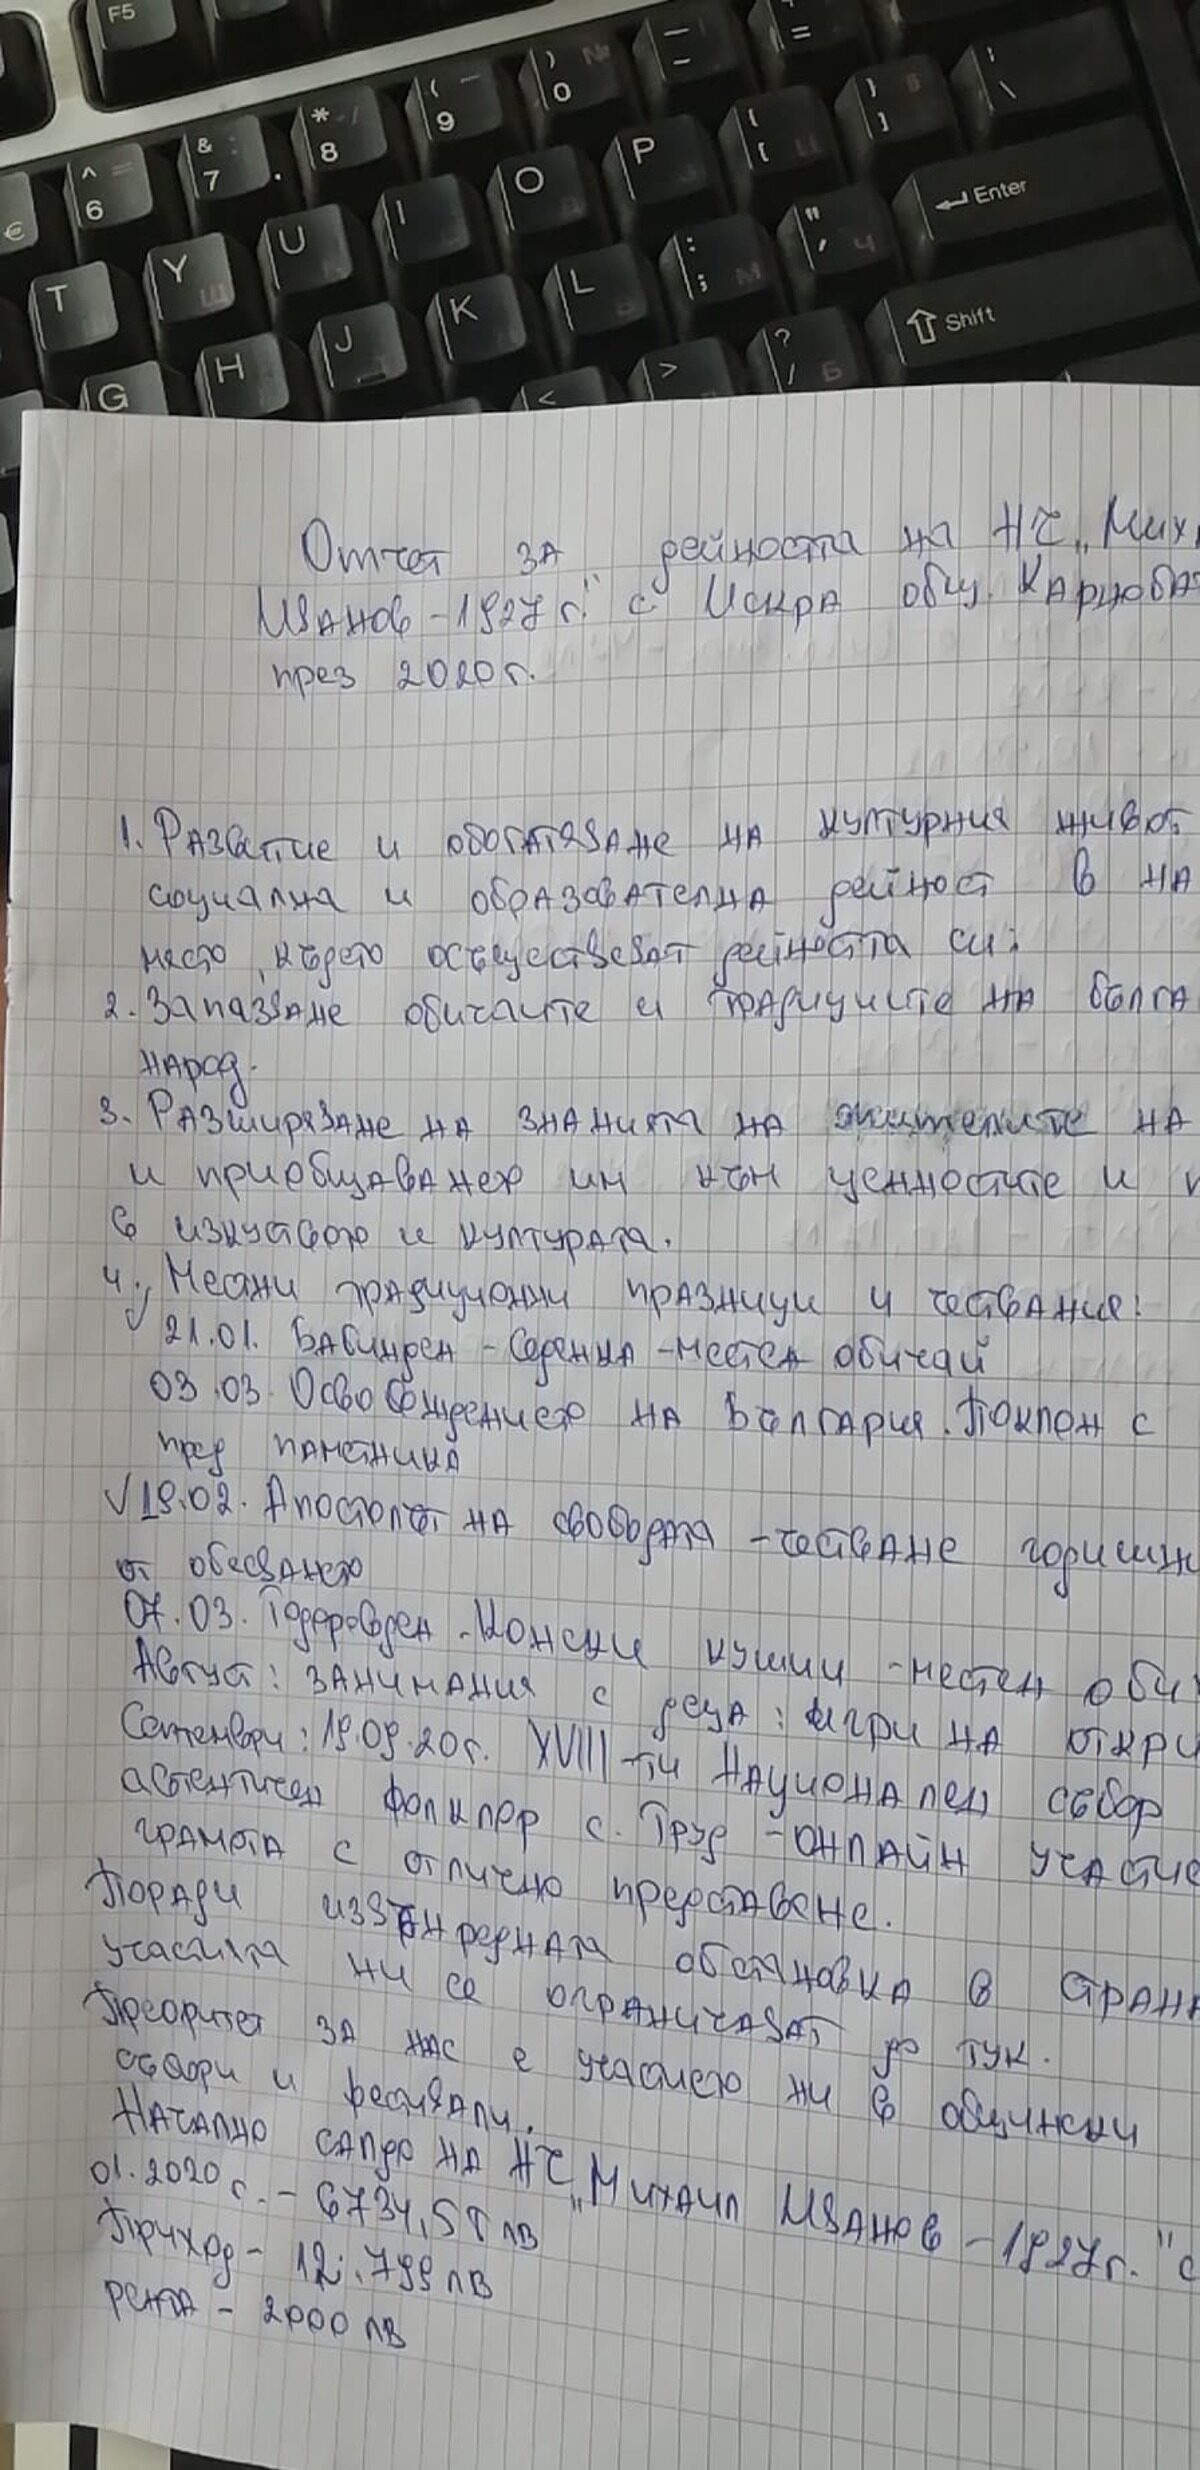 F5
^ 6
& 7
* 8
( 9
) 0 №
_ -
+ =
€
T
Y Ш
U
I
O
P
{ [ Щ
} ]
Enter
G
H
J
K
L
: ; М
" ' Ч
Shift
<
>
? / Б
Отчет за дейността на НЧ „Мих
Иванов - 1927 г." с Искра общ. Карнобат
през 2020 г.
1. Развитие и обогатяване на културния живот
социална и образователна дейност в на
място, където осъществяват дейността си:
2. Запазване обичаите и традициите на бълга
народ.
3. Разширяване на знанията на жителите на
и приобщаването им към ценностите и
в изкуството и културата.
4. Местни традиционни празници и чествания:
√ 21.01. Бабинден - Седенка - местен обичай
03.03. Освобождението на България. Поклон с
пред паметника
√ 19.02. Апостолът на свободата - честване годишн
от обесването
07.03. Тодоровден - Конски кушии - местен оби
Август: занимания с деца: игри на откри
Септември: 19.09.20 г. XVIII-ти Национален събор
автентичен фолклор с. Труд - онлайн участие
грамота с отлично представяне.
Поради извънредната обстановка в страна
участията ни се ограничават до тук.
Преоритет за нас е участието ни в общински
събори и фестивали.
Начално салдо на НЧ „Михаил Иванов - 1927 г." с
01.2020 г. - 6734,58 лв
Приход - 12.799 лв
рента - 2000 лв